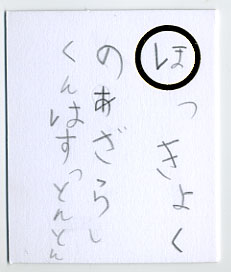 ほっきょく
のあざらし
くんはすっとんとん